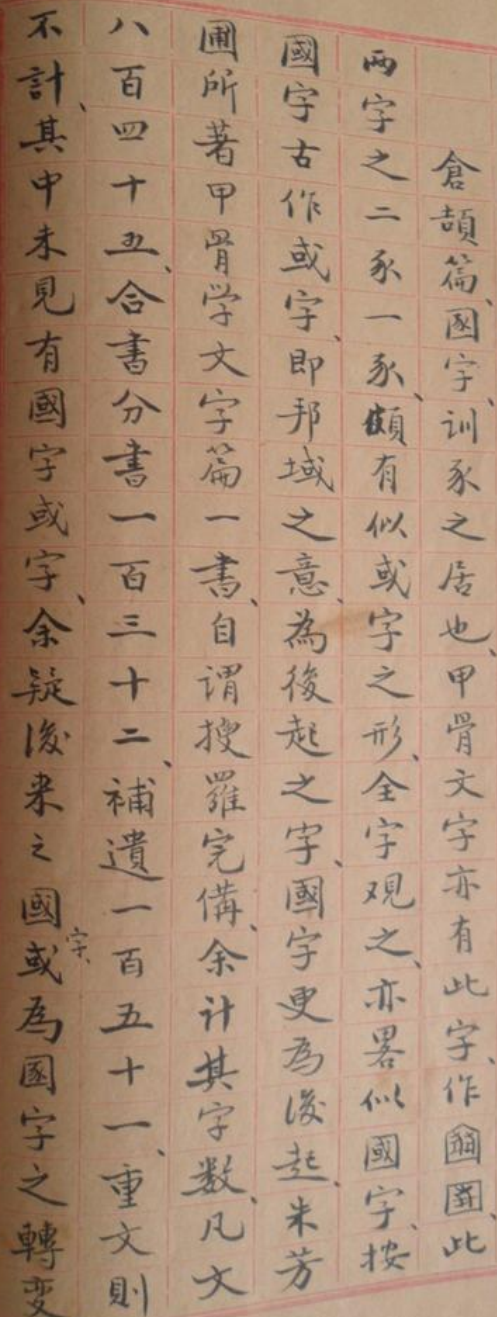 倉頡篇圂字、訓豕之居也、甲骨文字亦有此字、作此
两字之二豕一豕、頗有似或字之形、全字观之、亦畧似國字、按
國字古作或字、即邦域之意、為後起之字、國字更為後起、朱芳
圃所著甲骨学文字篇一書、自谓搜羅完備、余计其字数、凡文
八百四十五、合書分書一百三十二、補遺一百五十一、重文則
不計、其中未見有國字或字、余疑後来之國或字、為圂字之轉变